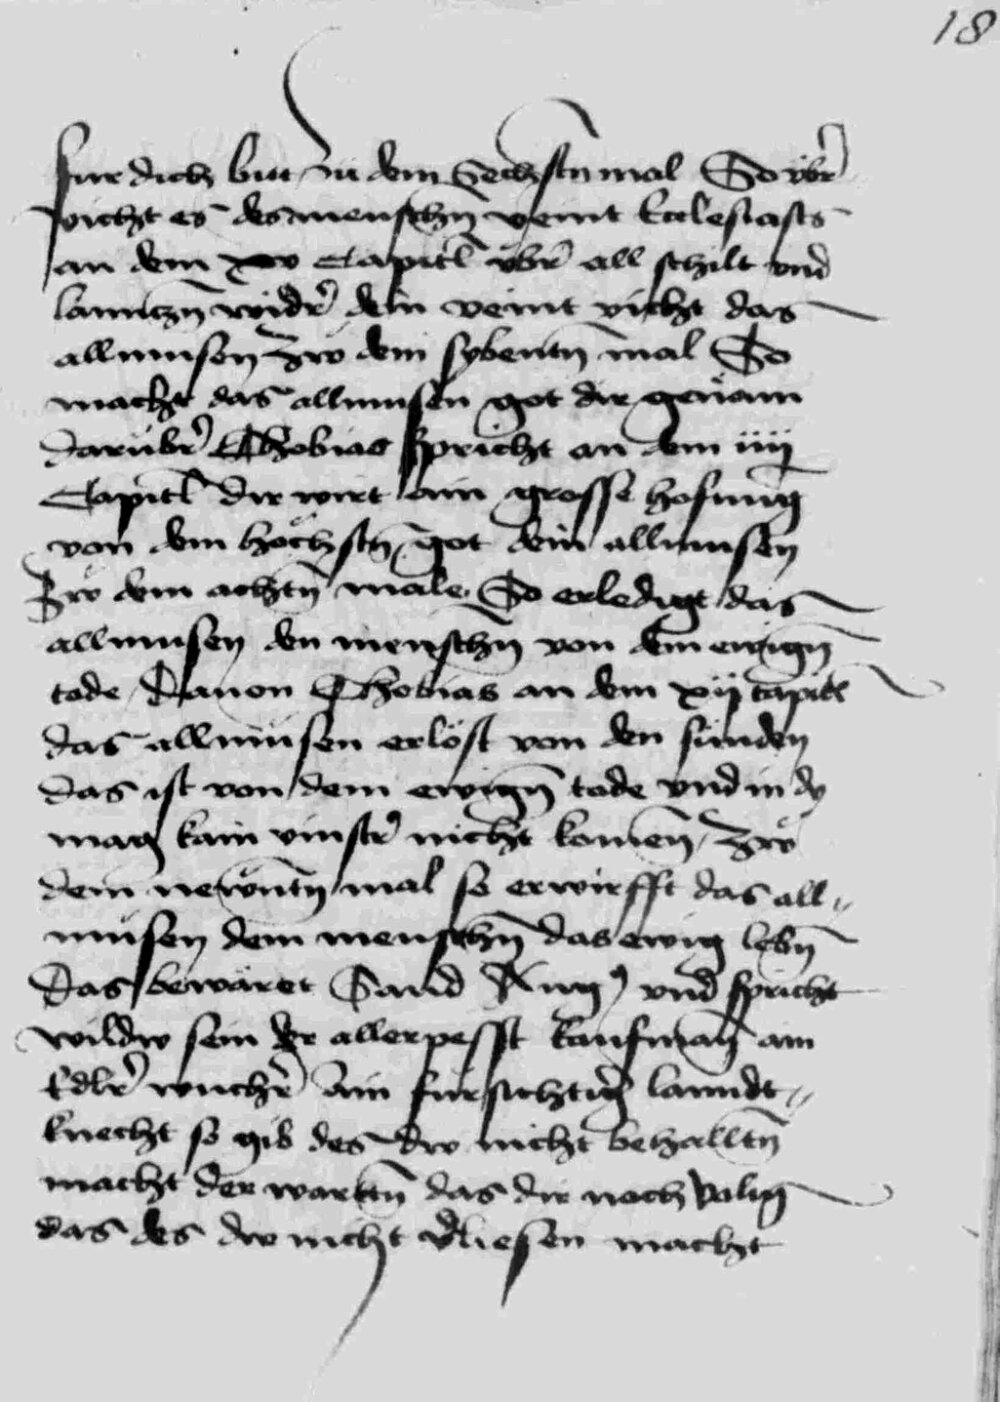 18
fur dich bitt zu dem Sechstn mal So vbr
vicht es des menschn veint Ecclesiasts
an dem xv Capitl vbr all schilt vnd
lannczn widr dein veint vicht das
allmusen Zw dem sybentn mal So
macht das allmusen got dir genam
darubr Thobias spricht an dem iiij
Capitl dir wirt ain grosse hofnung
von dem hochstn got dein allmusen
Zw dem achtn male So erledigt das
allmusen den menschn von dem ewign
tode Dauon Thobias an dem xij capitl
das allmusen erlost von den sunden
das ist von dem ewign tode vnd in dy
mag kain vinstr nicht komen Zw
dem newntn mal so erwirfft das all
musen dem menschn das ewig lebn
Das bewaret Sand Aug9 vnd spricht
wildw sein der allerpesst kaufman ain
Edlr wuchr ain fursichtig lanndt
knecht so gib des dw nicht behalltn
macht der wartn das dir noch volig
das des dw nicht vliesen macht